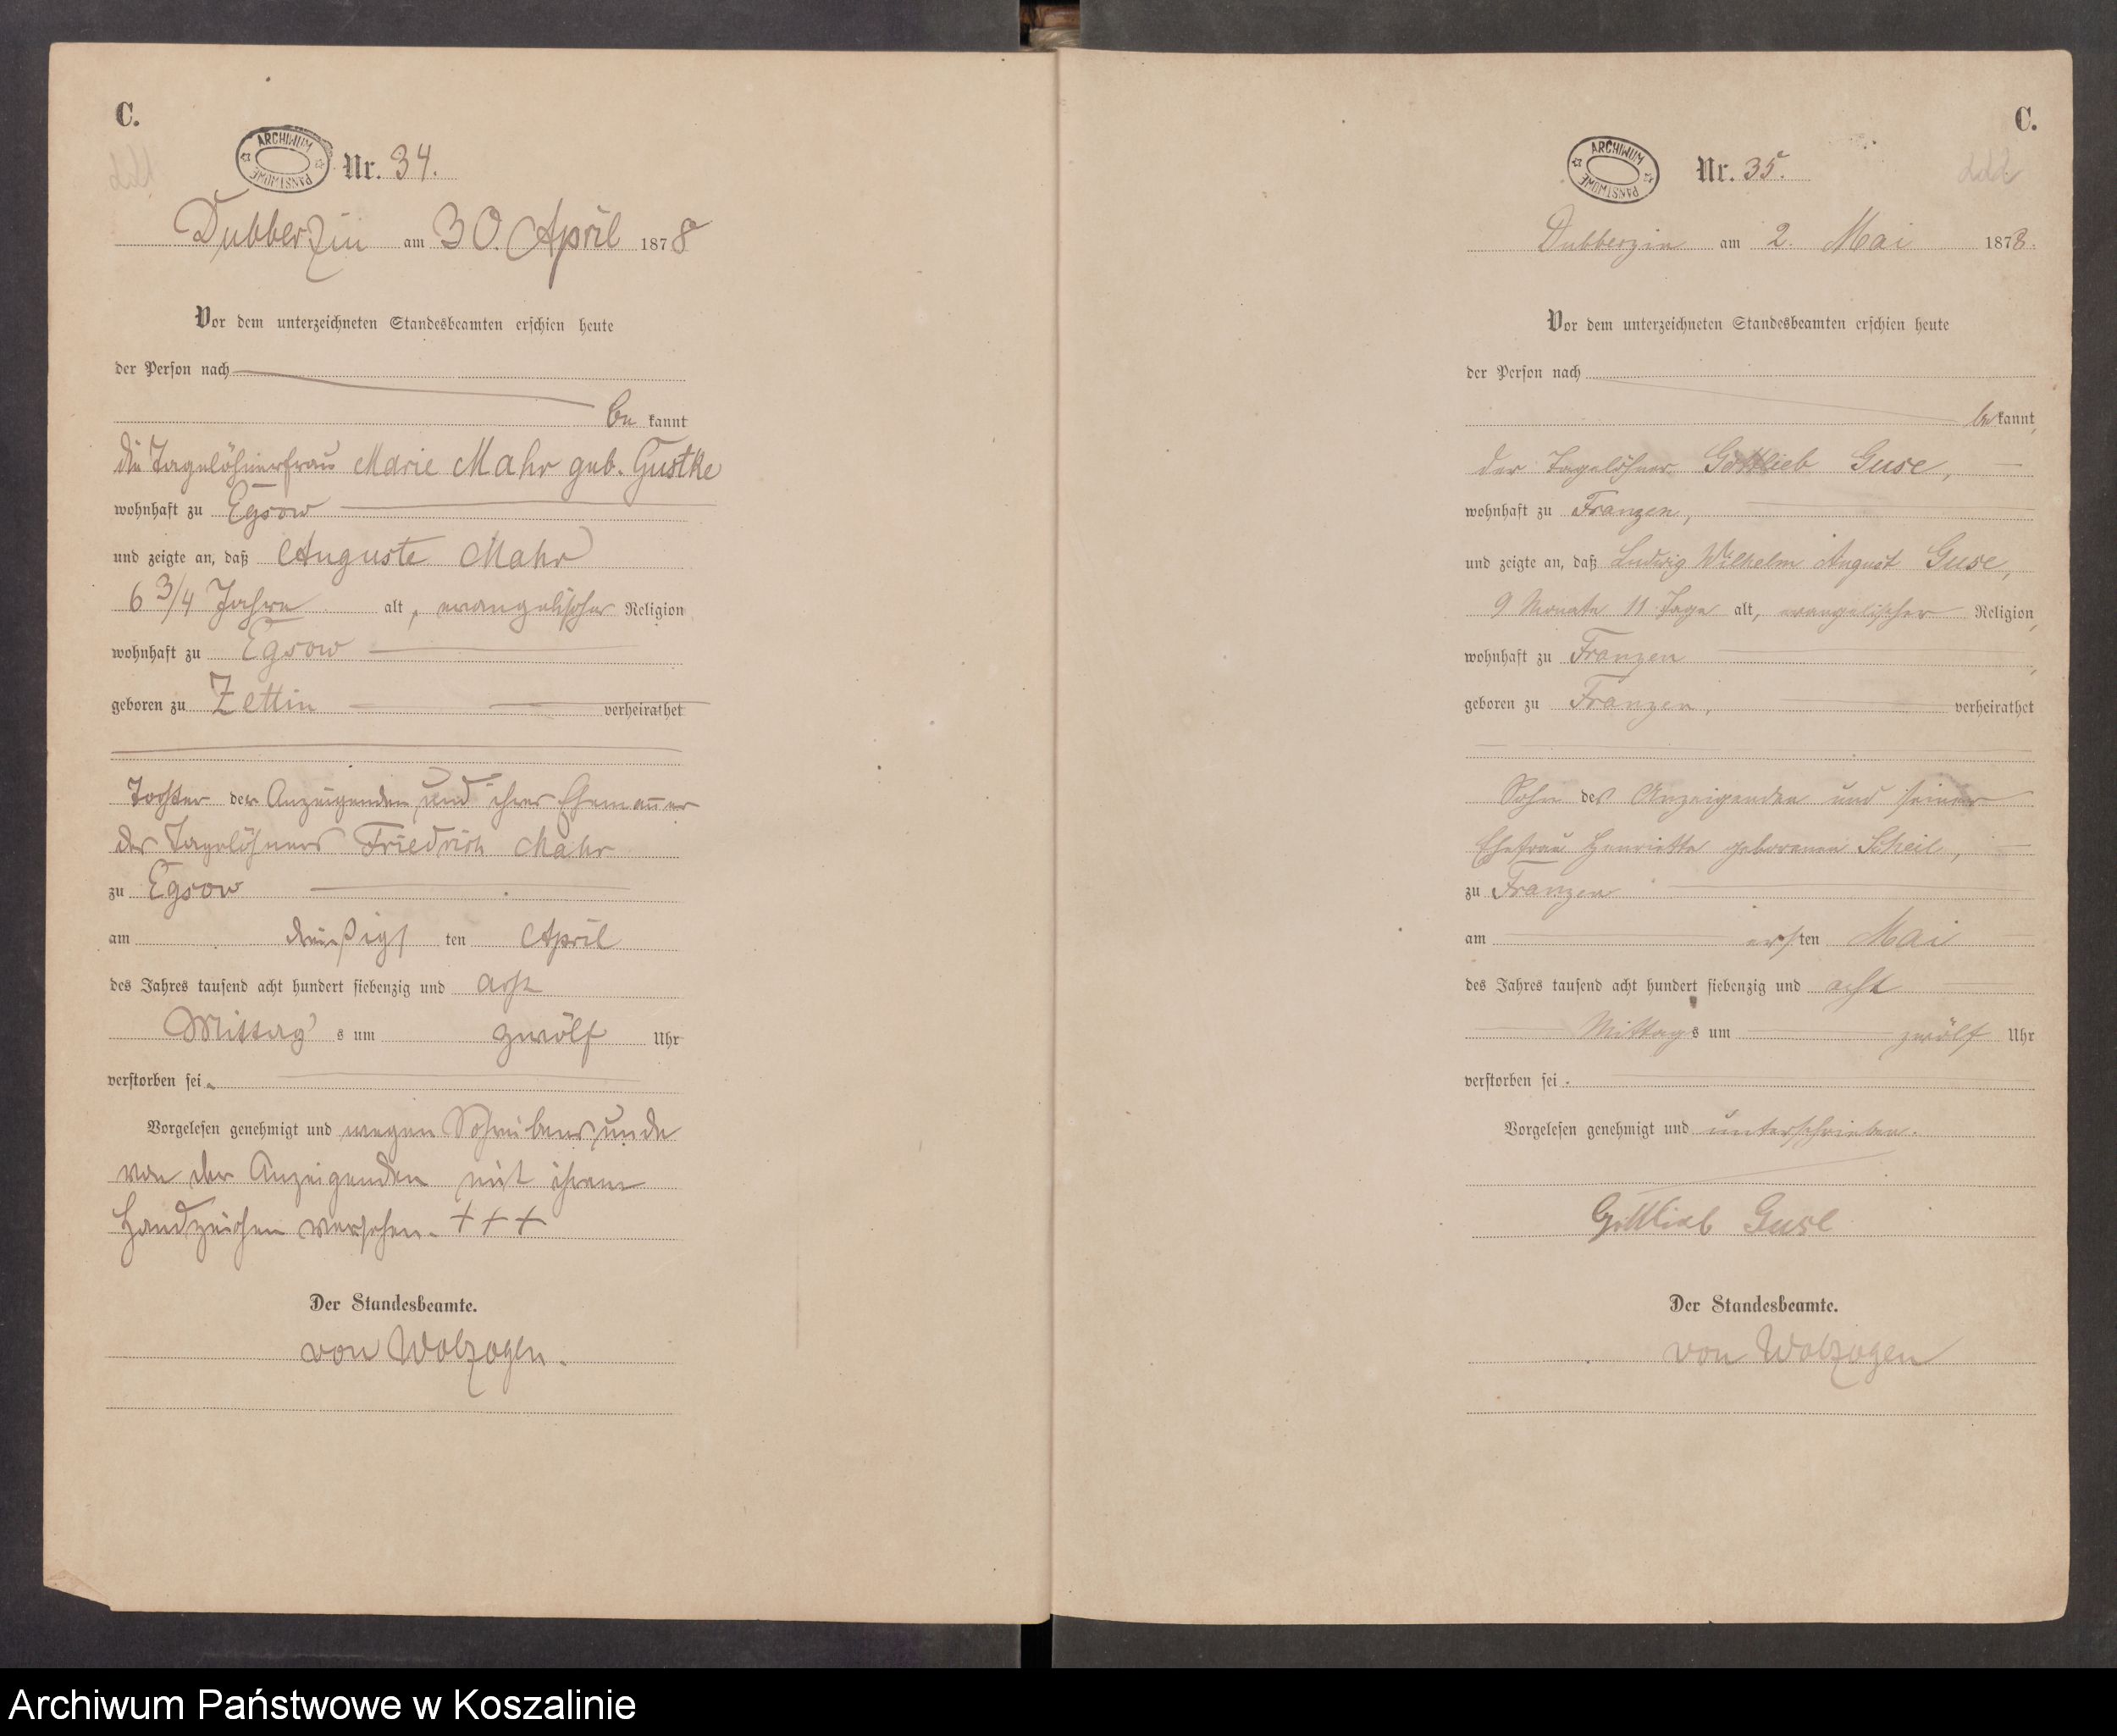 C.
ARCHIWUM PAŃSTWOWE
Nr. 34.
Dubberzin am 30. April 1878
Vor dem unterzeichneten Standesbeamten erschien heute
der Person nach
be kannt
die Tagelöhnerfrau Marie Mahr geb. Gustke
wohnhaft zu Egsow
und zeigte an, daß Auguste Mahr
6 3/4 Jahre alt, evangelischer Religion
wohnhaft zu Egsow
geboren zu Zettin verheirathet
Tochter der Anzeigenden und ihres Ehemannes
des Tagelöhners Friedrich Mahr
zu Egsow
am dreißigs ten April
des Jahres tausend acht hundert siebenzig und acht
Mittag s um zwölf Uhr
verstorben sei.
Vorgelesen genehmigt und wegen Schreibens
von der Anzeigenden mit ihrem
Handzeichen versehen. +++
Der Standesbeamte.
von Wolzogen.
C.
ARCHIWUM PAŃSTWOWE
Nr. 35.
Dubberzin am 2. Mai 1878.
Vor dem unterzeichneten Standesbeamten erschien heute
der Person nach
be kannt,
der Tagelöhner Gottlieb Guse,
wohnhaft zu Franzen,
und zeigte an, daß Ludwig Wilhelm August Guse,
9 Monate 11 Tage alt, evangelischer Religion,
wohnhaft zu Franzen,
geboren zu Franzen, verheirathet
Sohn des Anzeigenden und seiner
Ehefrau Henriette geborenen Scheil,
zu Franzen
am ers ten Mai
des Jahres tausend acht hundert siebenzig und acht
Mittag s um zwölf Uhr
verstorben sei.
Vorgelesen genehmigt und unterschrieben.
Gottlieb Guse
Der Standesbeamte.
von Wolzogen
Archiwum Państwowe w Koszalinie